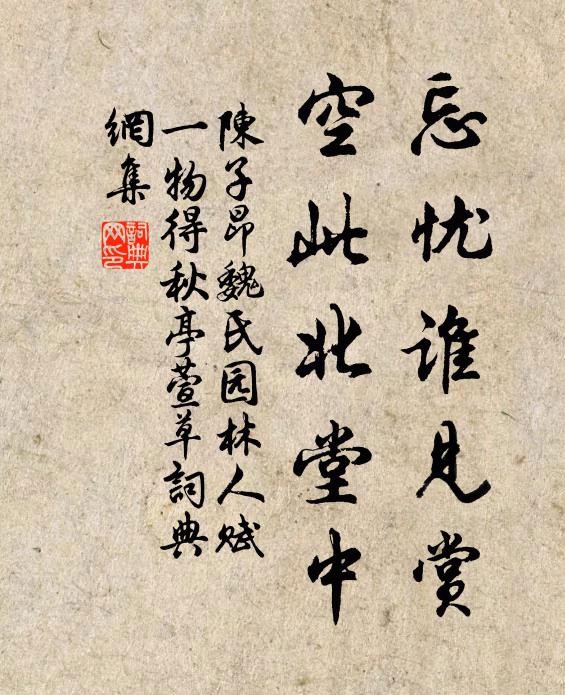 忘忧谁见赏
空此北堂中
陳子昂魏氏园林人赋
一物得秋亭萱草詞典
網集
詞典
网印